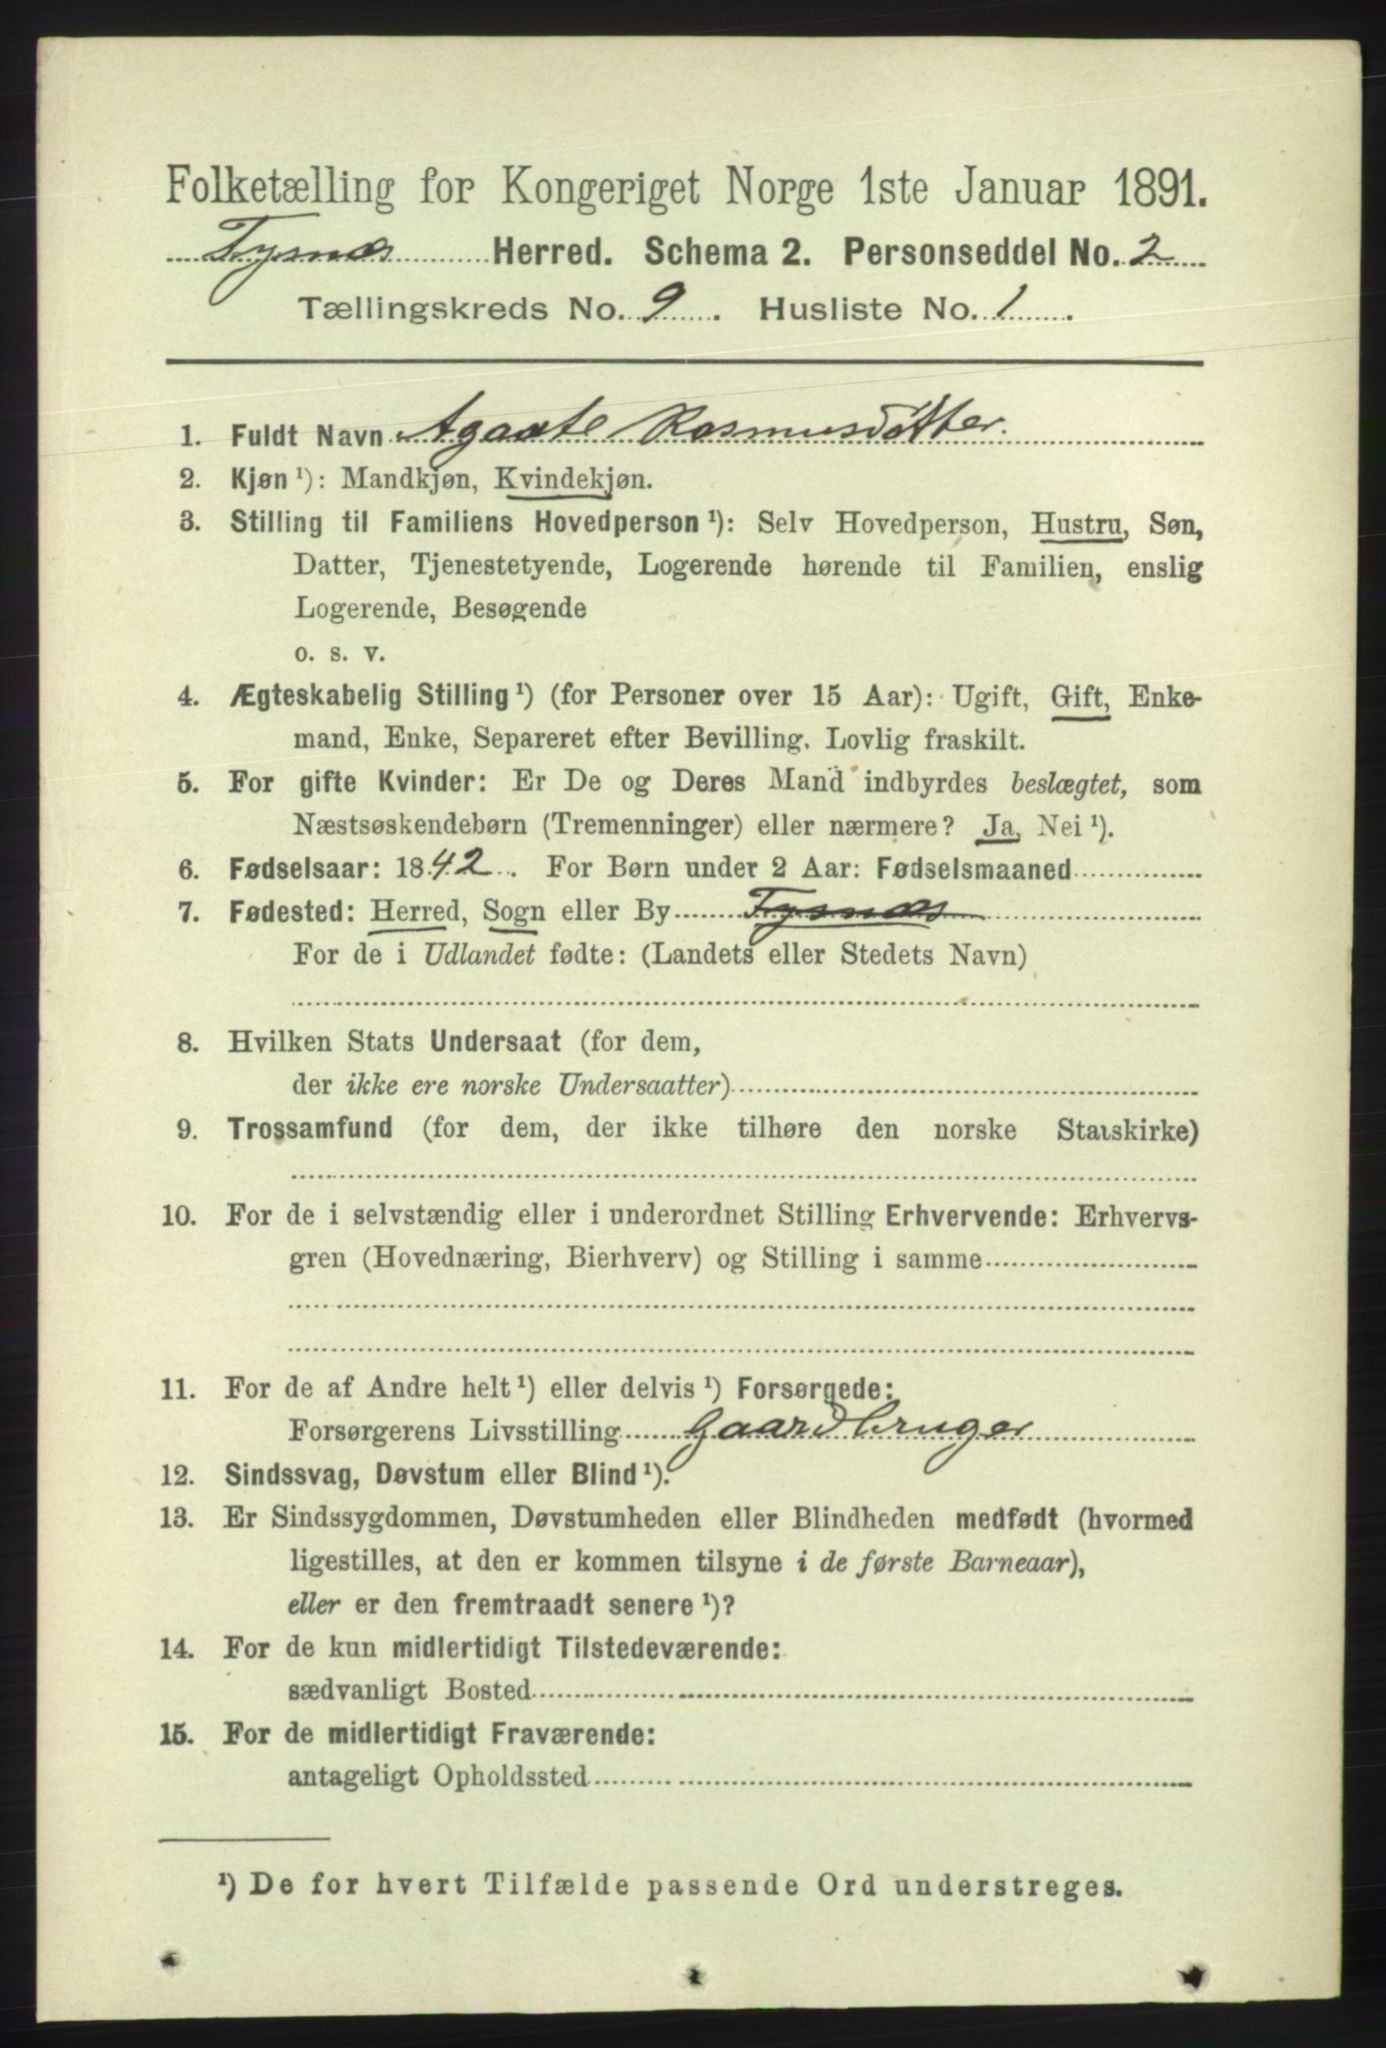 Folketælling for Kongeriget Norge 1ste Januar 1891.
Tysnæs Herred. Schema 2. Personseddel No. 2
Tællingskreds No. 9. Husliste No. 1.
1. Fuldt Navn Agaate Rasmusdotter.
2. Kjøn ¹): Mandkjøn, Kvindekjøn.
3. Stilling til Familiens Hovedperson ¹): Selv Hovedperson, Hustru, Søn,
Datter, Tjenestetyende, Logerende hørende til Familien, enslig
Logerende, Besøgende
o. s. v.
4. Ægteskabelig Stilling ¹) (for Personer over 15 Aar): Ugift, Gift, Enke-
mand, Enke, Separeret efter Bevilling. Lovlig fraskilt.
5. For gifte Kvinder: Er De og Deres Mand indbyrdes beslægtet, som
Næstsøskendebørn (Tremenninger) eller nærmere? Ja, Nei ¹).
6. Fødselsaar: 1842. For Børn under 2 Aar: Fødselsmaaned
7. Fødested: Herred, Sogn eller By Tysnæs
For de i Udlandet fødte: (Landets eller Stedets Navn)
8. Hvilken Stats Undersaat (for dem,
der ikke ere norske Undersaatter)
9. Trossamfund (for dem, der ikke tilhøre den norske Statskirke)
10. For de i selvstændig eller i underordnet Stilling Erhvervende: Erhvervs-
gren (Hovednæring, Bierhverv) og Stilling i samme
11. For de af Andre helt ¹) eller delvis ¹) Forsørgede:
Forsørgerens Livsstilling Gaardbruger
12. Sindssvag, Døvstum eller Blind ¹).
13. Er Sindssygdommen, Døvstumheden eller Blindheden medfødt (hvormed
ligestilles, at den er kommen tilsyne i de første Barneaar),
eller er den fremtraadt senere ¹)?
14. For de kun midlertidigt Tilstedeværende:
sædvanligt Bosted
15. For de midlertidigt Fraværende:
antageligt Opholdssted
¹) De for hvert Tilfælde passende Ord understreges.